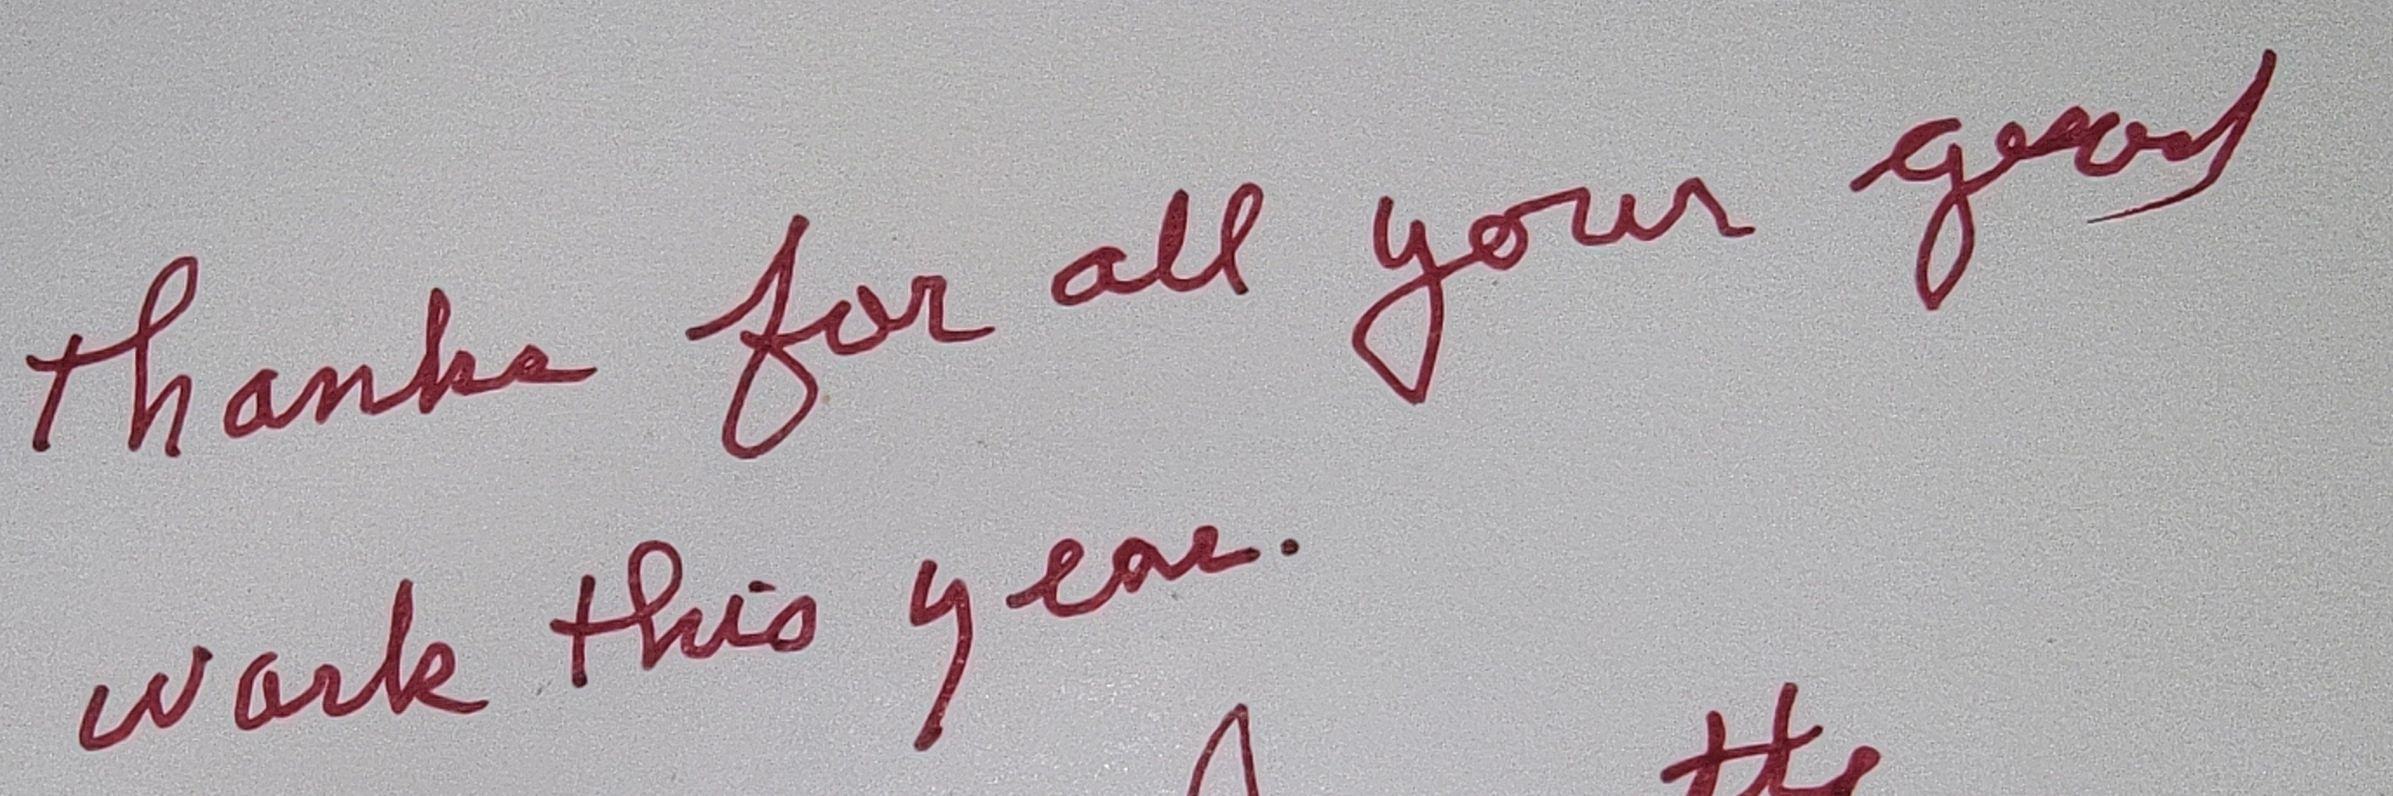 thanks for all your good
work this year.
the